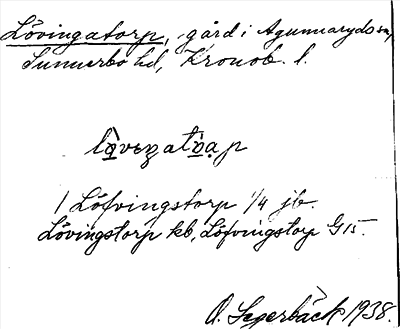 Lövingatorp, gård i Agunnaryds sn,
Sunnerbo hd, Kronob. l.
1 Löfvingstorp 1/4 jb.
Lövingstorp kb, Löfvingstorp G 15.
O. Segerbäck 1938.